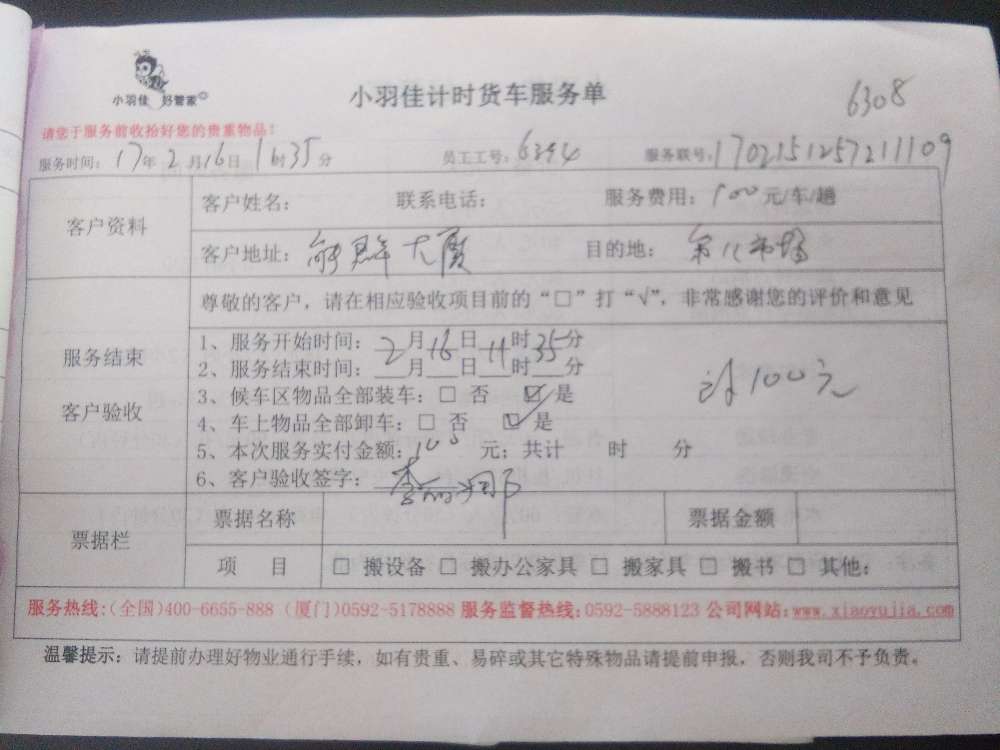 小羽佳 好管家
小羽佳计时货车服务单
6308
请您于服务前收拾好您的贵重物品！
服务时间：17年2月16日11时35分 员工工号：6294 服务联号：1702151257211109
客户资料
客户姓名： 联系电话： 服务费用：100元/车/趟
客户地址：大厦 目的地：第八市场
尊敬的客户，请在相应验收项目前的“□”打“√”，非常感谢您的评价和意见
服务结束
客户验收
1、服务开始时间：2月16日11时35分
2、服务结束时间：__月__日__时__分
3、候车区物品全部装车：□ 否 ☑ 是
4、车上物品全部卸车：□ 否 ☑ 是
5、本次服务实付金额：100 元；共计 时 分
6、客户验收签字：李
计100元
票据栏
票据名称 票据金额
项 目 □ 搬设备 □ 搬办公家具 □ 搬家具 □ 搬书 □ 其他：
服务热线:(全国)400-6655-888 (厦门)0592-5178888 服务监督热线:0592-5888123 公司网站:www.xiaoyujia.com
温馨提示：请提前办理好物业通行手续，如有贵重、易碎或其它特殊物品请提前申报，否则我司不予负责。